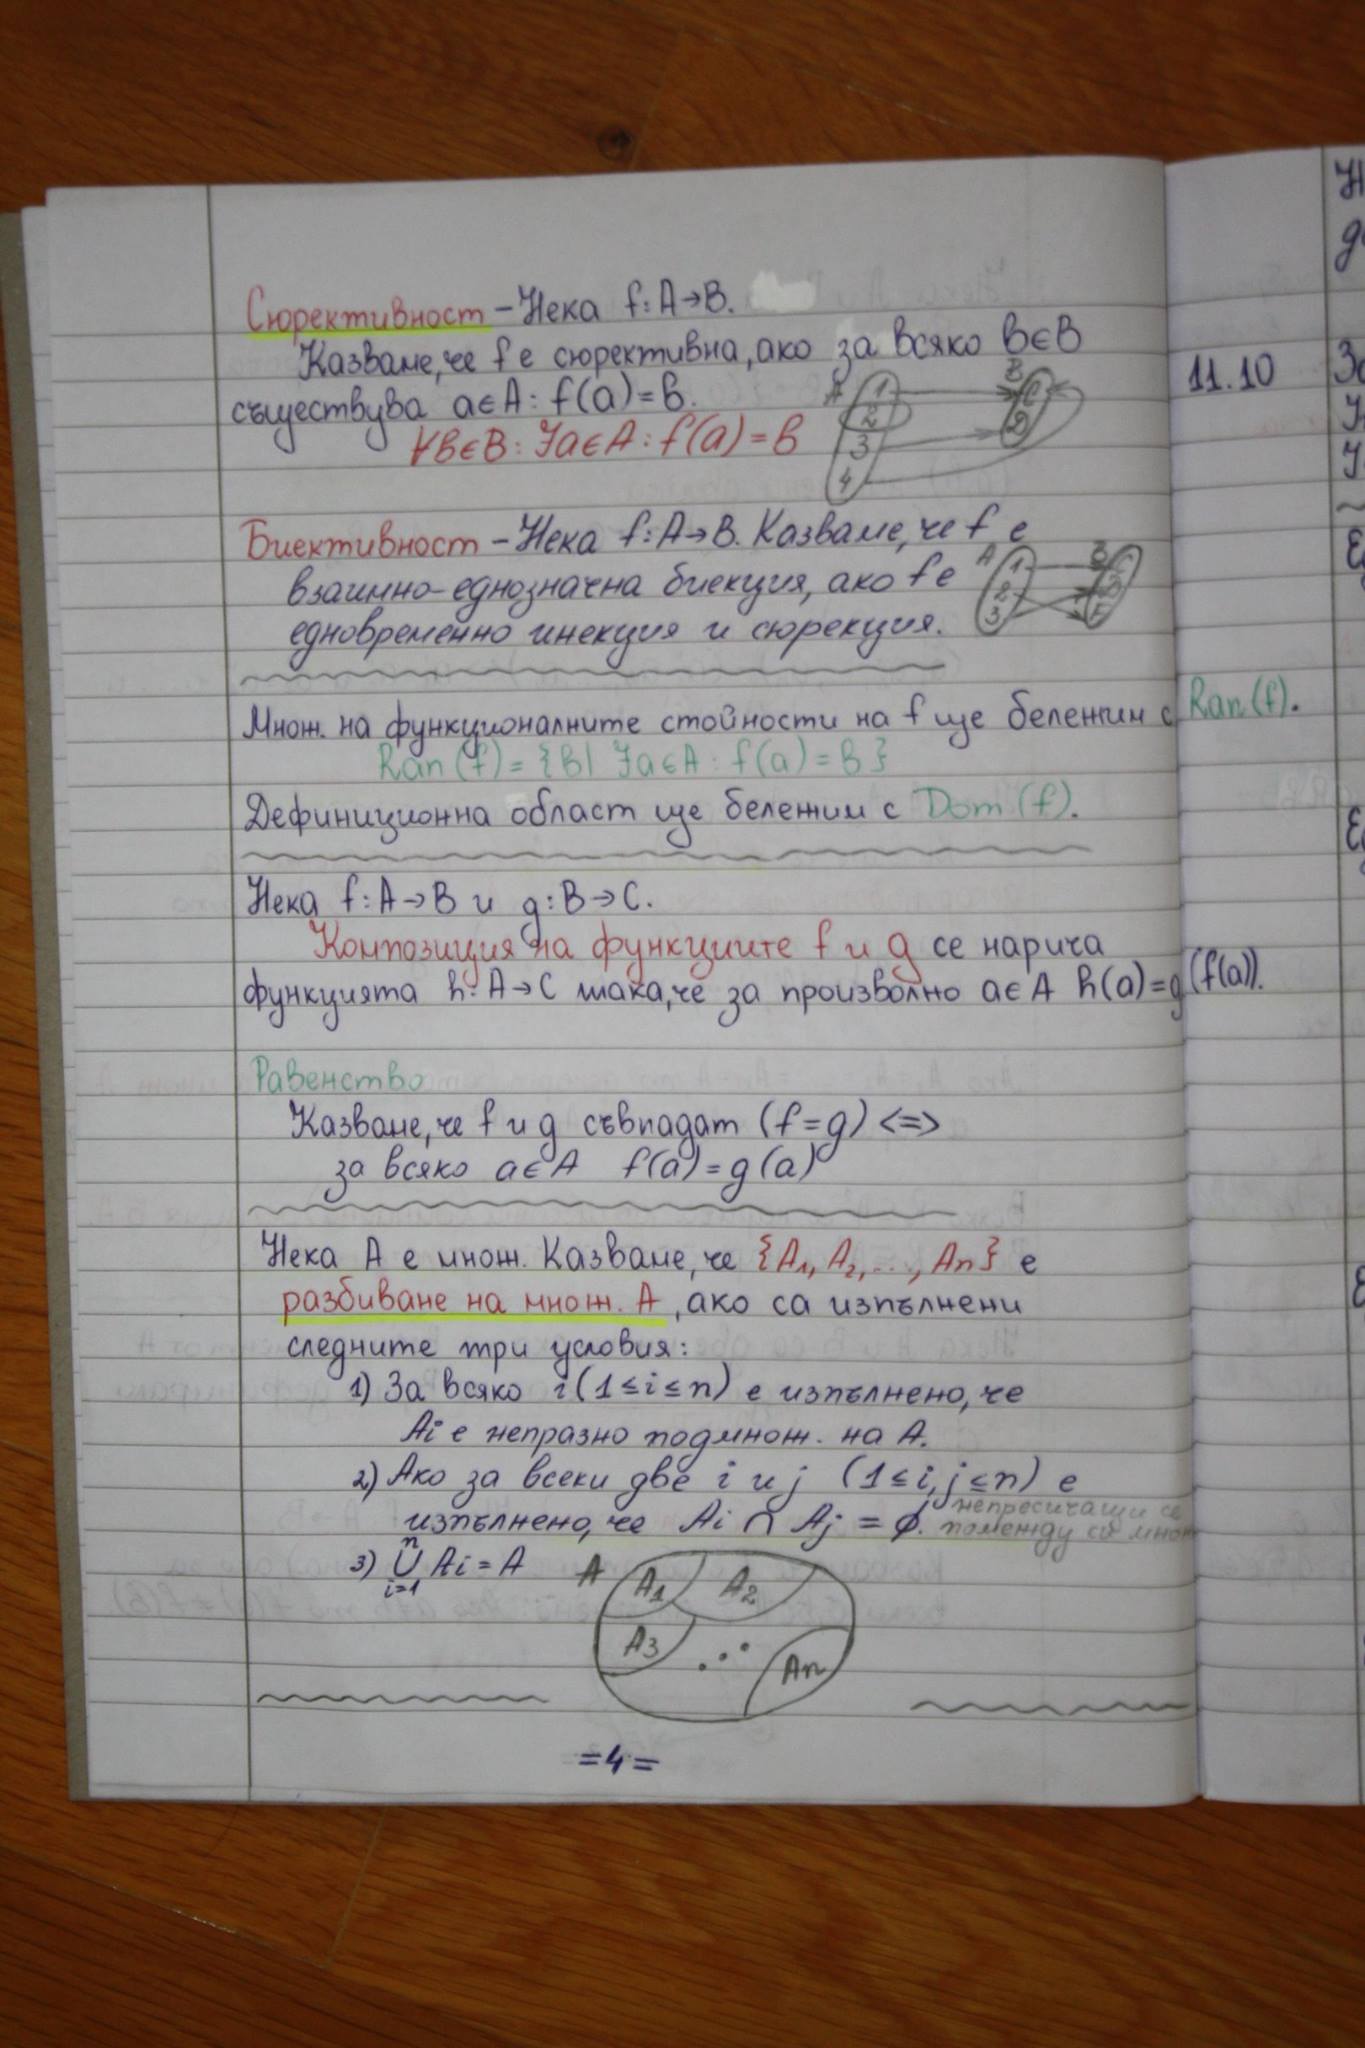 Сюрективност – Нека f: A→B.
Казваме, че f е сюрективна, ако за всяко b∈B
съществува a∈A: f(a)=b.
∀b∈B: ∃a∈A: f(a)=b
A 1 2 3 4 B C D
Биективност – Нека f: A→B. Казваме, че f е
взаимно-еднозначна биекция, ако f е
едновременно инекция и сюрекция.
A 1 2 3 B C D E
Множ. на функционалните стойности на f ще бележим с Ran(f).
Ran(f) = {b| ∃a∈A: f(a)=b}
Дефиниционна област ще бележим с Dom(f).
Нека f: A→B и g: B→C.
Композиция на функциите f и g се нарича
функцията h: A→C така, че за произволно a∈A h(a)=g(f(a)).
Равенство
Казваме, че f и g съвпадат (f=g) <=>
за всяко a∈A f(a)=g(a)
Нека A е множ. Казваме, че {A₁, A₂, ..., Aₙ} е
разбиване на множ. A, ако са изпълнени
следните три условия:
1) За всяко i (1≤i≤n) е изпълнено, че
Ai е непразно подмнож. на A.
2) Ако за всеки две i и j (1≤i,j≤n) е
изпълнено, че Ai ∩ Aj = ∅. непресичащи се
помежду си множ
3) ⋃ⁿᵢ₌₁ Ai = A
A A₁ A₂
A₃ ... Aₙ
=4=
11.10